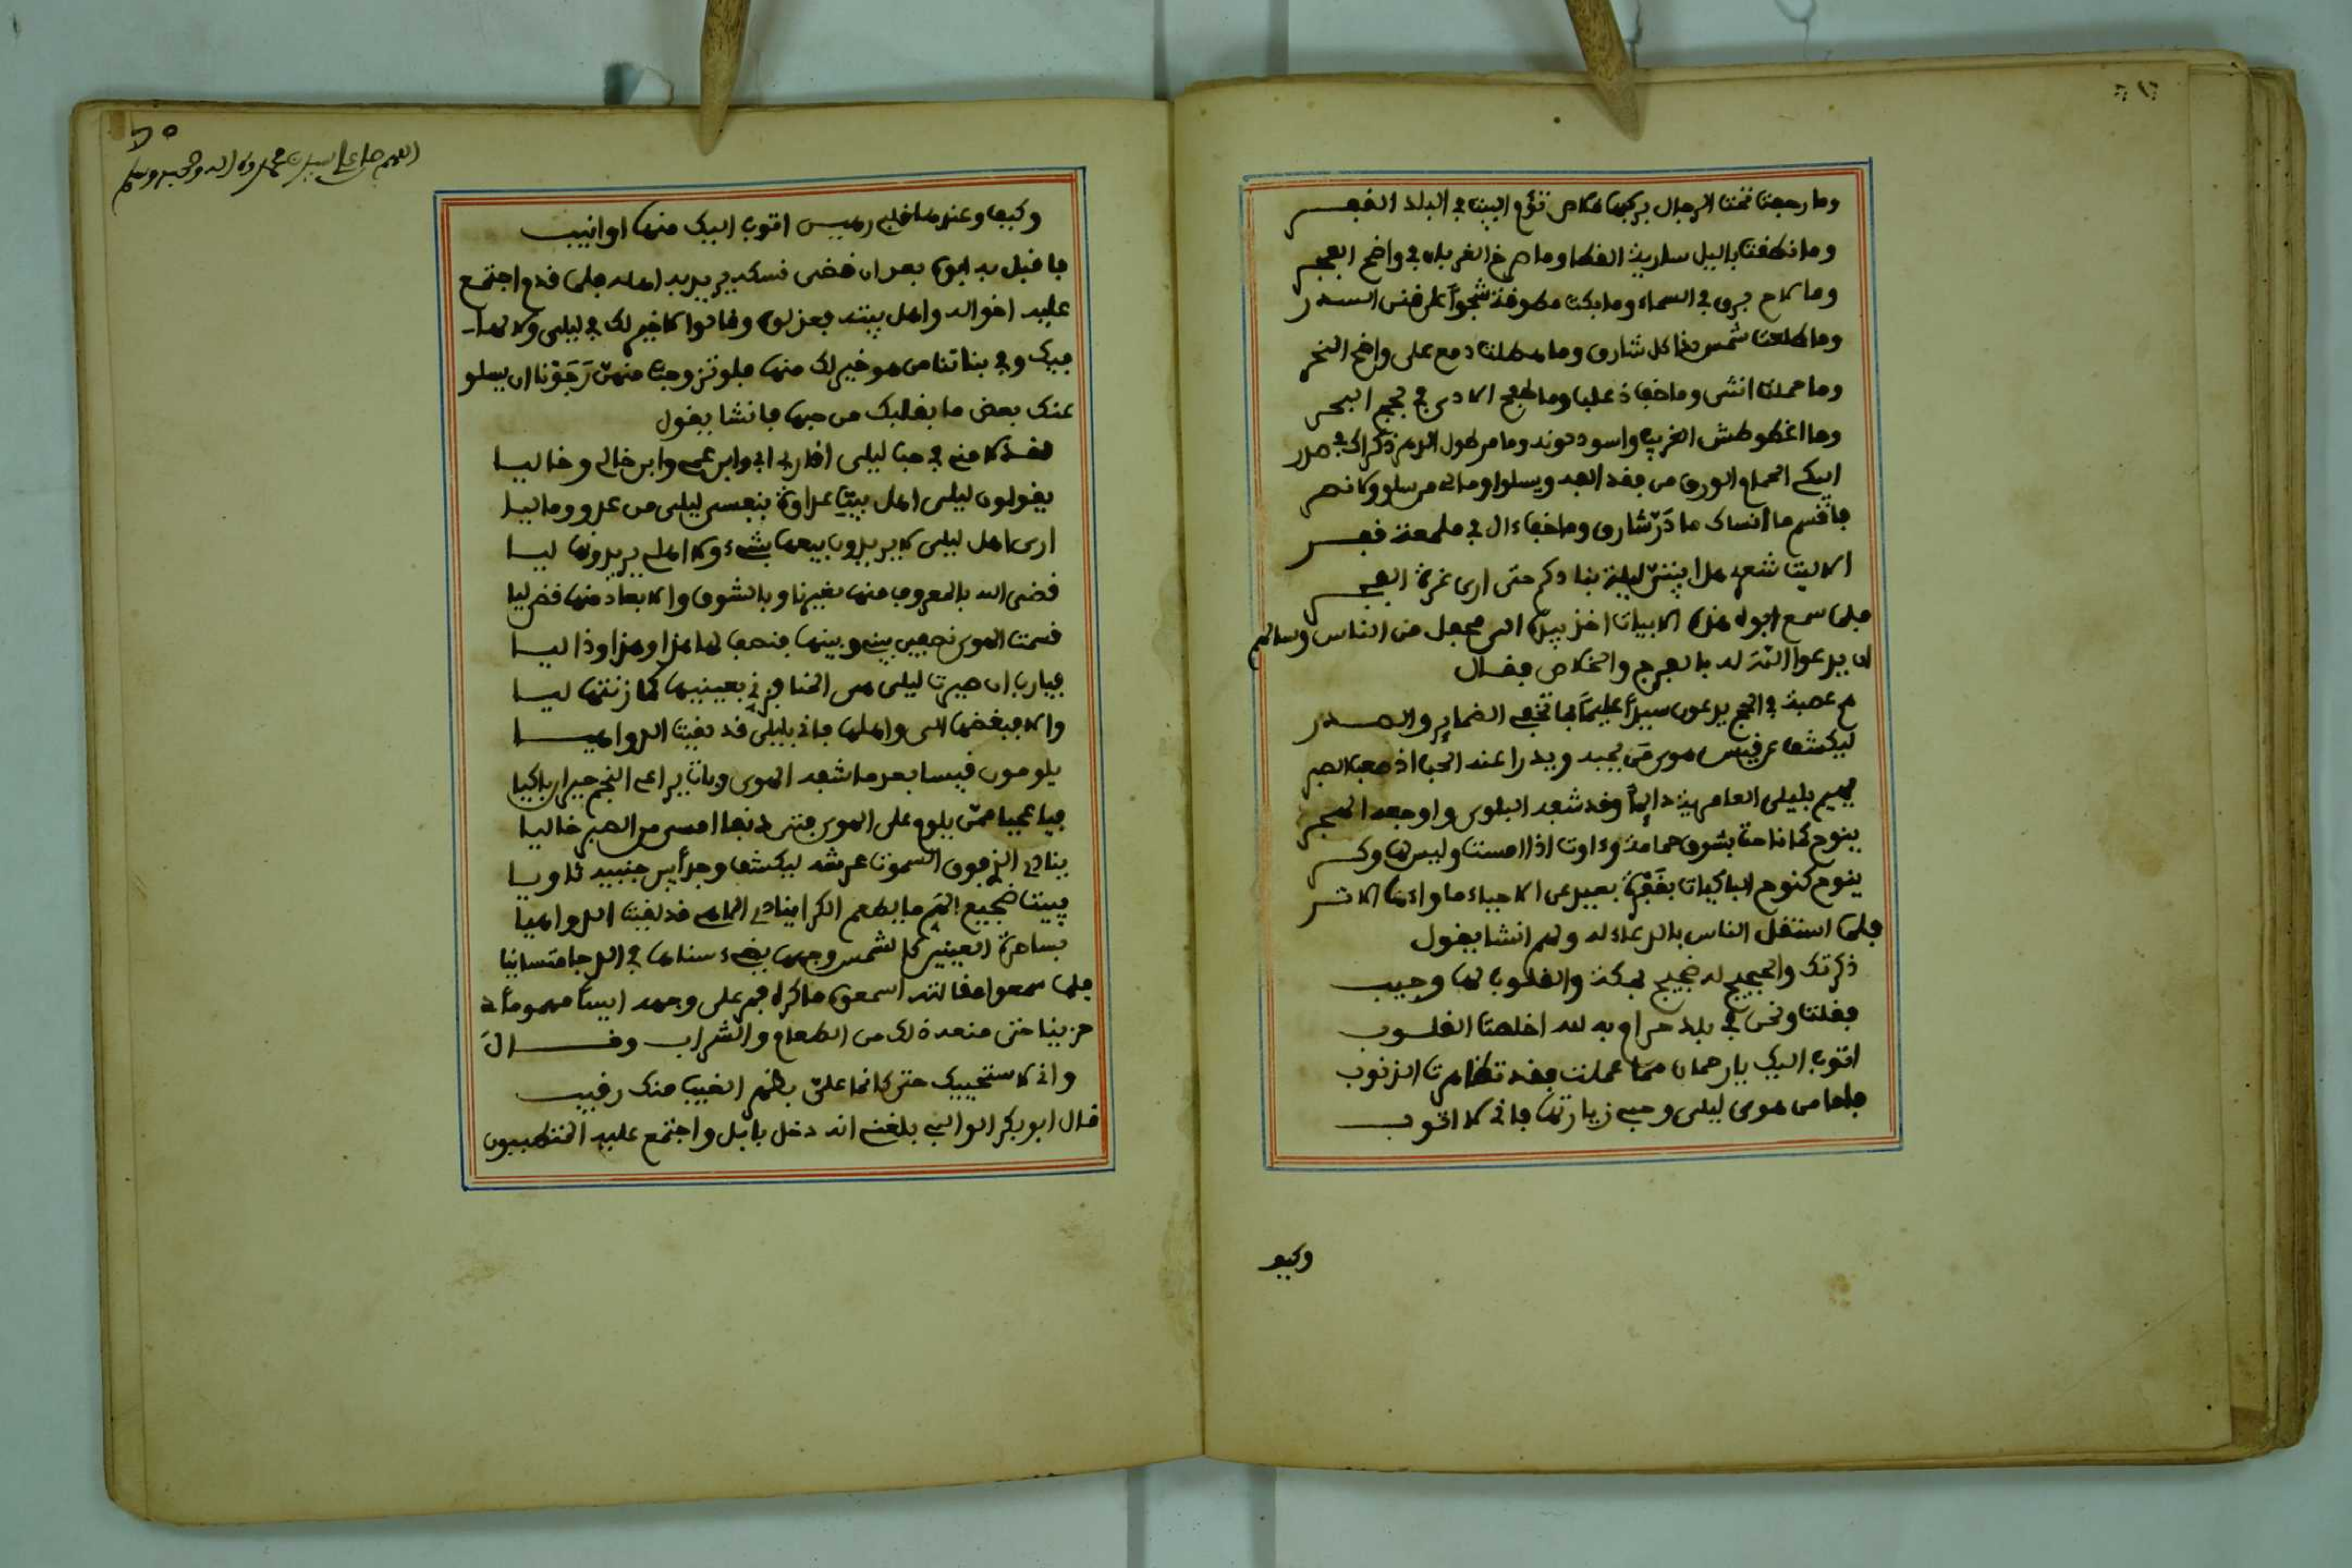 وما رحمت تحت الرجال بركبها قلاص تؤم البيت في البلد القفر
وما نطقت باليل سارية القطا وما صرخ الغربان في واضح الفجر
وما لاح برق في السماء وما بكت مطوقة شجوا على فنن السدر
وما طلعت شمس لذا كل شارق وما هطلت دمع على واضح النحر
وما حملت انثى وما خب ذعلب وما طفح الاذى في لجج البحر
وما اغطوطش الغربيب واسود لونه وما مر طول الدهر ذكراك في صدر
ابكي الحمام الورق من فقد الفه ويسلوا ومالي من سلو ولا نصر
فاقسم ما انساك ما ذر شارق وما خب ءال في ملمعة قفر
الا ليت شعري هل ابيتن ليلة بنادكم حتى ارى غرة الفجر
فلما سمع ابوه هذه الابيات اخذ بيده الى محفل من الناس وسالهم
ان يدعوا الله له بالفرج والخلاص فقال
مع عصبة في الحج يدعون سيدا عليما بما تخفي الضماير والصدر
ليكشف عن قيس هوى من يحبه ويدرا عند الحب اذ صعب الصبر
يهيم بليلى العامرية دايما وقد شفه البلوى واوجعه الهجر
ينوح كما ناحت بشوق حمامة وءاوت اذا امست وليس لها وكر
ينوح كنوح الباكيات بقفرة بعيد عن الاحباء ما واءها الا شر
فلما استقل الناس بالدعاء له ولهم انشا يقول
ذكرتك والحجيج له ضجيج بمكة والقلوب لها وجيب
فقلت ونحن في بلد حرام به لله اخلصت القلوب
اتوب اليك يا رحمان مما عملت فقد تظاهرت الذنوب
فاما من هوى ليلى وحبي زيارتها فاني لا اتوب
وكيف
اللهم صل على سيدنا محمد وءاله وصحبه وسلم
وكيف وعندها قلبي رهيس اتوب اليك منها او انيب
فاقبل به ابوه بعد ان قضى نسكه يريد اهله فلما قدم اجتمع
عليه اخواله واهل بيته فعزلوه وقالوا لا خير لك في ليلى ولا لها
فيك وفي بناتنا من هو خير لك منها فلو تزوجت منهن رجونا ان يسلو
عنك بعض ما بقلبك من حبها فانشا يقول
لقد لامني في حب ليلى اقاربي ابي وابن عمي وابن خالي وخاليا
يقولون ليلى اهل بيت عداوة بنفسي ليلى من عدو وماليا
ارى اهل ليلى لا يريدون بيعها بشيء ولا اهلي يريدونها ليا
قضى الله بالمعروف منها لغيرنا وبالشوق والابعاد منها قضى ليا
قسمت الهوى نصفين بيني وبينها فنصف لها هذا وهذا وذا ليا
فيارب ان صيرت ليلى هي المنا فزني بعينيها كما زنتها ليا
والا فبغضها الي واهلها فاني بليلى قد لقيت الدواهيا
يلومون قيسا بعد ما شفه الهوى وبات يراعي النجم حيران باكيا
فيا عجبا ممن يلوم على الهوى فتى دنفا امسى من الصبر خاليا
ينادي الذي فوق السموت عرشه ليكشف وجدا بين جنبيه ثاويا
يبيت ضجيع الهم ما يطعم الكرا ينادي الاهي قد لقيت الدواهيا
بساحرة العينين كالشمس وجهها يضيء سناها في الدجا متسانيا
فلما سمعوا مقالته اسمعوه ما كره فمر على وجهه ايسا مهموما
حزينا حتى منعه ذلك من الطعام والشراب وقال
واني لاستحييك حتى كانما علي بظهر الغيب منك رقيب
قال ابو بكر الوالبي بلغني انه دخل بابل واجتمع عليه المتطببون